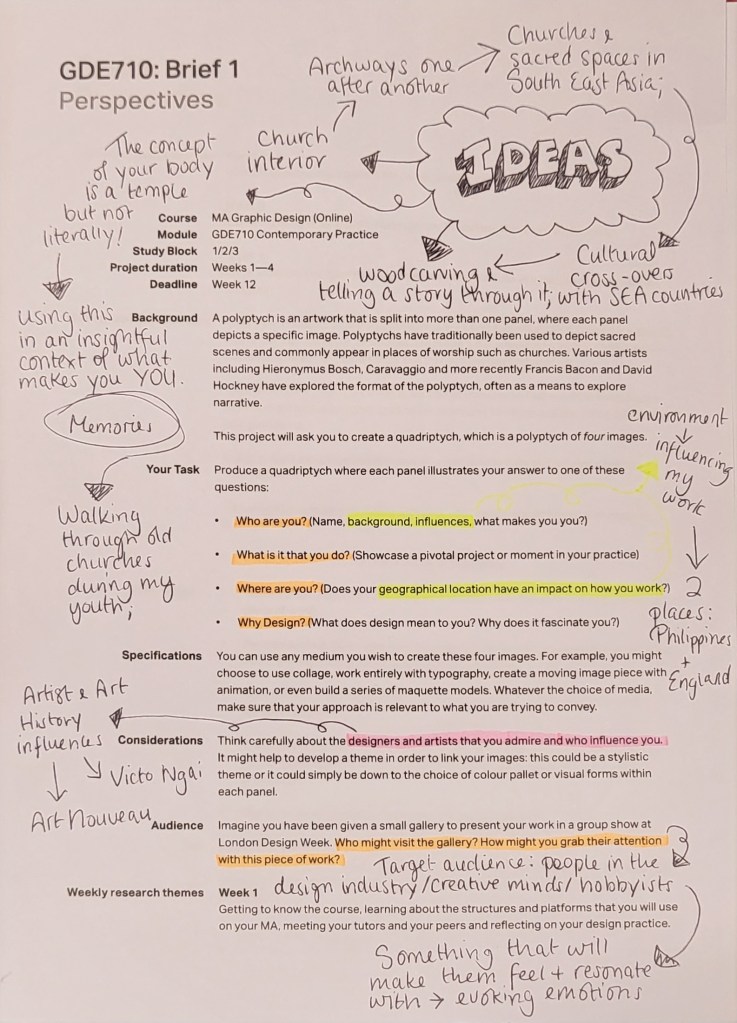 GDE710: Brief 1
Perspectives
IDEAS
Church
interior
Archways one
after another
Churches &
sacred spaces in
South East Asia;
Cultural
cross-overs
with SEA countries
woodcarving &
telling a story through it;
The concept
of your body
is a temple
but not
literally!
using this
in an insightful
context of what
makes you YOU.
Course MA Graphic Design (Online)
Module GDE710 Contemporary Practice
Study Block 1/2/3
Project duration Weeks 1—4
Deadline Week 12
Background A polyptych is an artwork that is split into more than one panel, where each panel
depicts a specific image. Polyptychs have traditionally been used to depict sacred
scenes and commonly appear in places of worship such as churches. Various artists
including Hieronymus Bosch, Caravaggio and more recently Francis Bacon and David
Hockney have explored the format of the polyptych, often as a means to explore
narrative.
This project will ask you to create a quadriptych, which is a polyptych of four images.
Memories
Walking
through old
churches
during my
youth;
Your Task Produce a quadriptych where each panel illustrates your answer to one of these
questions:
• Who are you? (Name, background, influences, what makes you you?)
• What is it that you do? (Showcase a pivotal project or moment in your practice)
• Where are you? (Does your geographical location have an impact on how you work?)
• Why Design? (What does design mean to you? Why does it fascinate you?)
environment
influencing
my
work
2
places:
Philippines
+
England
Specifications You can use any medium you wish to create these four images. For example, you might
choose to use collage, work entirely with typography, create a moving image piece with
animation, or even build a series of maquette models. Whatever the choice of media,
make sure that your approach is relevant to what you are trying to convey.
Artist & Art
History
influences
Victo Ngai
Art Nouveau
Considerations Think carefully about the designers and artists that you admire and who influence you.
It might help to develop a theme in order to link your images: this could be a stylistic
theme or it could simply be down to the choice of colour pallet or visual forms within
each panel.
Audience Imagine you have been given a small gallery to present your work in a group show at
London Design Week. Who might visit the gallery? How might you grab their attention
with this piece of work?
Target audience: people in the
design industry/creative minds/hobbyists
Weekly research themes Week 1
Getting to know the course, learning about the structures and platforms that you will use
on your MA, meeting your tutors and your peers and reflecting on your design practice.
Something that will
make them feel + resonate
with → evoking emotions